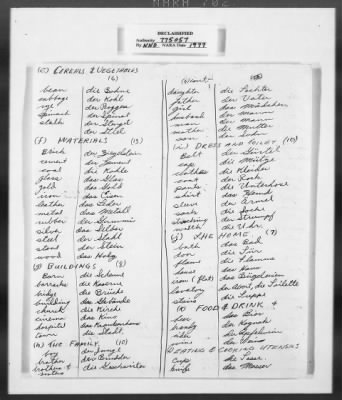 DECLASSIFIED
Authority 775057
By NND NARA Date 1977
(E) CEREALS & VEGETABLES
(6)
bean die Bohne
cabbage der Kohl
rye der Roggen
spinach der Spinat
stalk der Stengel
der Stiel
(F) MATERIALS (13)
Brick der Ziegelstein
cement der Zement
coal die Kohle
glass das Glas
gold das Gold
iron das Eisen
leather das Leder
metal das Metall
rubber der Gummi
silver das Silber
steel der Stahl
stone der Stein
wood das Holz
(G) BUILDINGS (8)
Barn die Scheune
barracks die Kaserne
bridge die Brücke
building das Gebäude
church die Kirche
cinema das Kino
hospital das Krankenhaus
town die Stadt
(H) THE FAMILY (10)
boy der Junge
brother der Bruder
brothers & sisters die Geschwister
daughter die Tochter
father der Vater
girl das Mädchen
husband der Mann
man der Mann
mother die Mutter
son der Sohn
DRESS AND TOILET (10)
Belt der Gürtel
cap die Mütze
clothes die Kleider
coat der Rock
pants die Unterhose
shirt das Hemd
sleeve der Ärmel
sock die Socke
stocking der Strumpf
watch die Uhr
(J) THE HOME (7)
bath das Bad
door die Tür
flame die Flamme
house das Haus
iron (flat) das Bügeleisen
lavatory der Abort, die Toilette
stairs die Treppe
(K) FOOD & DRINK
beer das Bier
brandy der Kognak
EATING & COOKING UTENSILS
cup die Tasse
knife das Messer